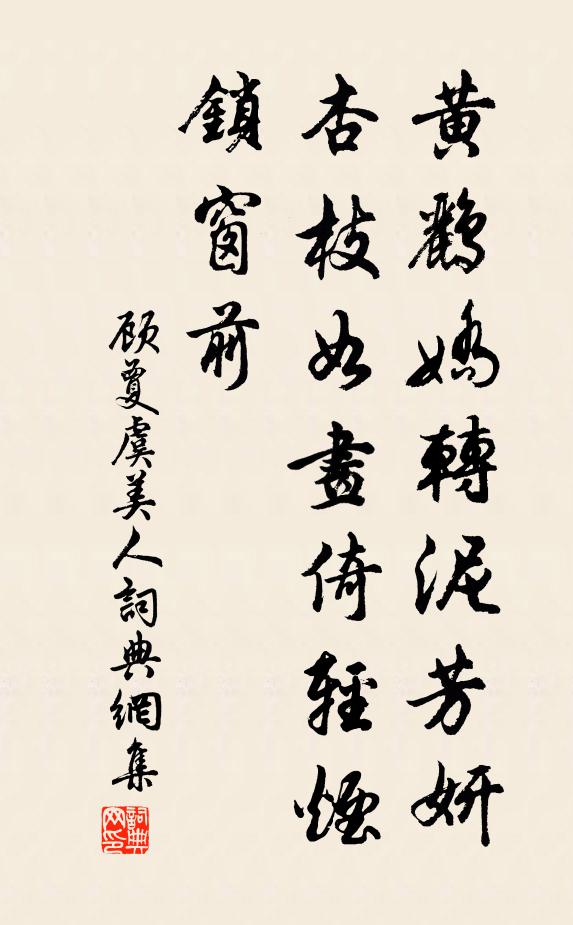 黄鸝嬌轉泥芳妍
杏枝如畫倚輕煙
鎖窗前
顾夐虞美人詞典網集
詞典网印